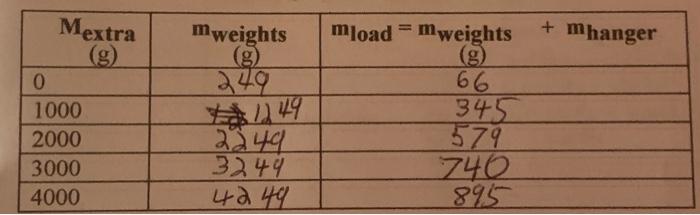 Mextra (g) mweights (g) mload = mweights + mhanger (g)
0 249 66
1000 1249 345
2000 2249 579
3000 3249 740
4000 4249 895